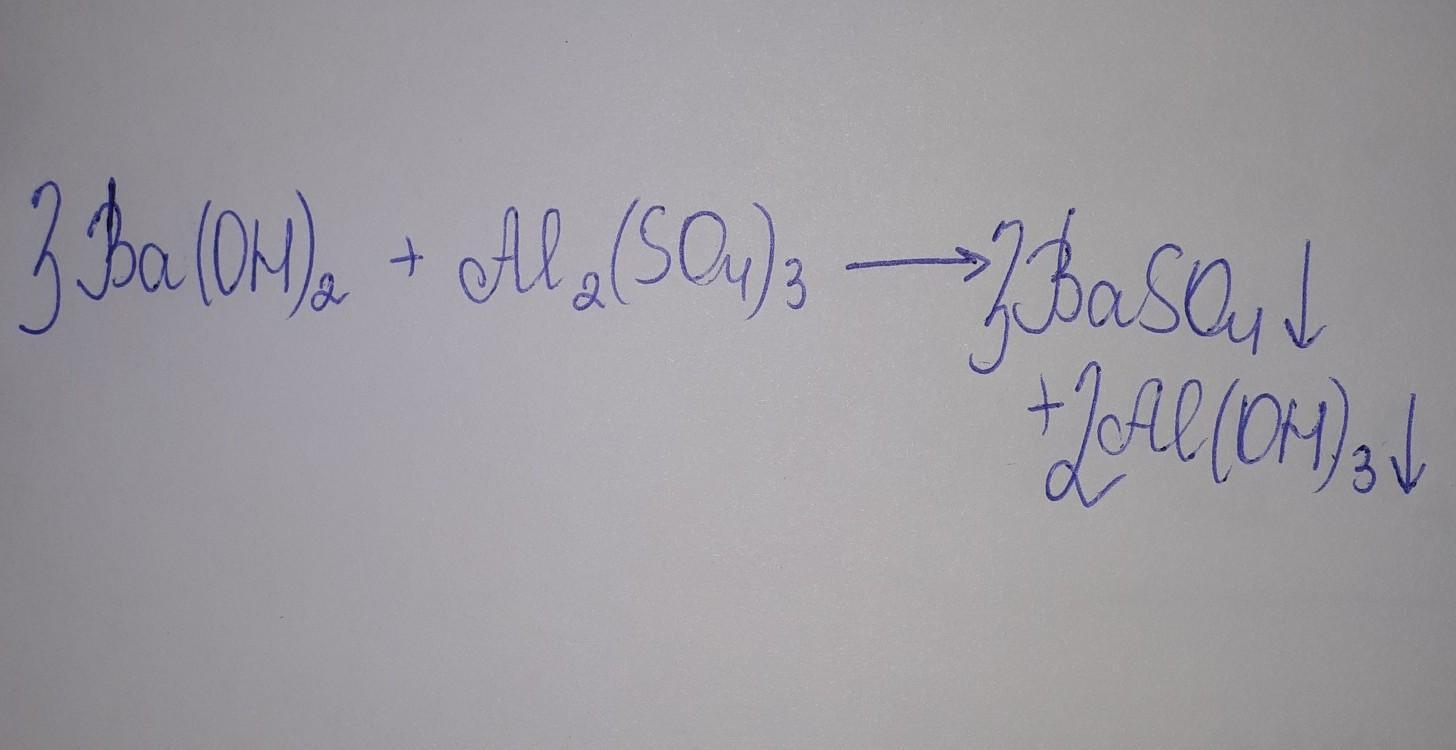 3Ba(OH)₂ + Al₂(SO₄)₃ → 3BaSO₄↓
+2Al(OH)₃↓